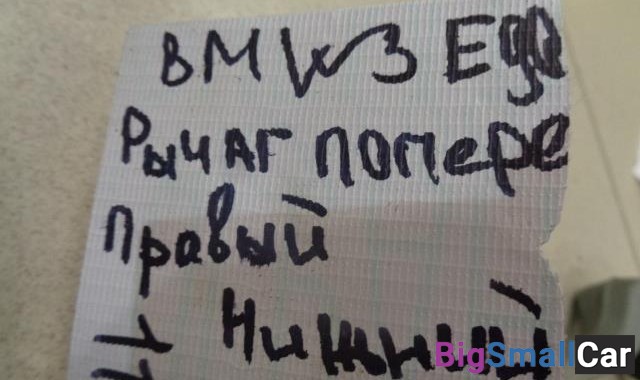 BMW 3 E90
Рычаг попере
Правый
Нижний
BigSmallCar